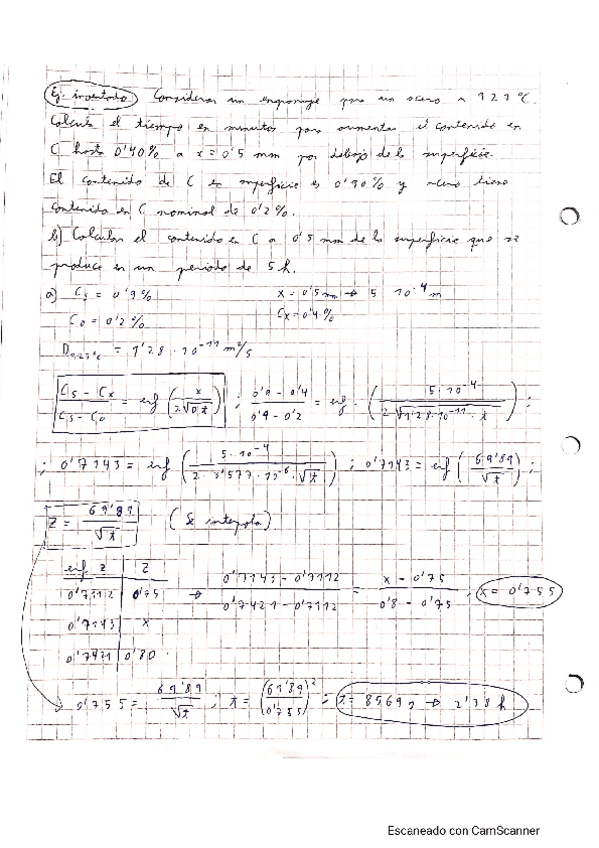 Ej. inventado Considerar un engranaje para un acero a 927 ºC.
Calcula el tiempo en minutos para aumentar el contenido en
C hasta 0'40% a x = 0'5 mm por debajo de la superficie.
El contenido de C en superficie es 0'90% y acero tiene
contenido en C nominal de 0'2%.
b) Calcular el contenido en C a 0'5 mm de la superficie que se
produce en un periodo de 5 h.
a) Cs = 0'9% x = 0'5 mm → 5 · 10⁻⁴ m
C0 = 0'2% Cx = 0'4%
D927ºC = 1'28 · 10⁻¹¹ m²/s
(Cs - Cx)/(Cs - C0) = erf (x/(2√(Dt))) ; (0'9 - 0'4)/(0'9 - 0'2) = erf · (5 · 10⁻⁴/(2 · √(1'28 · 10⁻¹¹ · t))) ;
; 0'7143 = erf (5 · 10⁻⁴/(2 · 3'577 · 10⁻⁶ · √t)) ; 0'7143 = erf (69'89/√t) ;
Z = 69'89/√t (Se interpola)
erf z Z
0'7112 0'75 → (0'7143 - 0'7112)/(0'7421 - 0'7112) = (x - 0'75)/(0'8 - 0'75) ; x = 0'755
0'7143 x
0'7421 0'80
0'755 = 69'89/√t ; t = (69'89/0'755)² ; t = 8569 s → 2'38 h
Escaneado con CamScanner